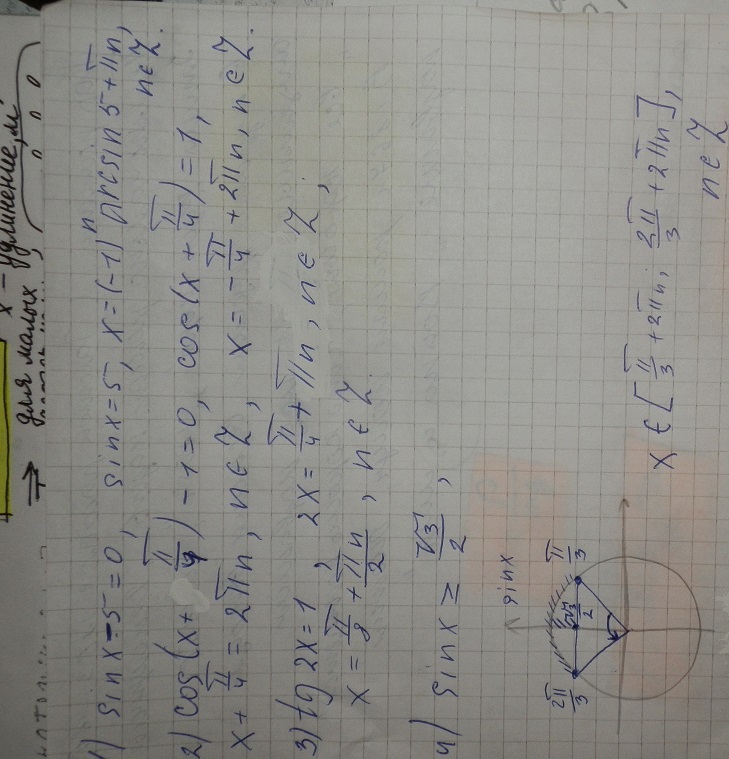 x - удлинение, м.
⇒ для малых
1) sinx-5=0, sinx=5, x=(-1)ⁿ arcsin5+πn,
n∈Z.
2) cos(x+π/4)-1=0, cos(x+π/4)=1,
x+π/4=2πn, n∈Z, x=-π/4+2πn, n∈Z.
3) tg2x=1, 2x=π/4+πn, n∈Z,
x=π/8+πn/2, n∈Z.
4) sinx≥√3/2,
sinx
2π/3 √3/2 π/3
x∈[π/3+2πn; 2π/3+2πn],
n∈Z